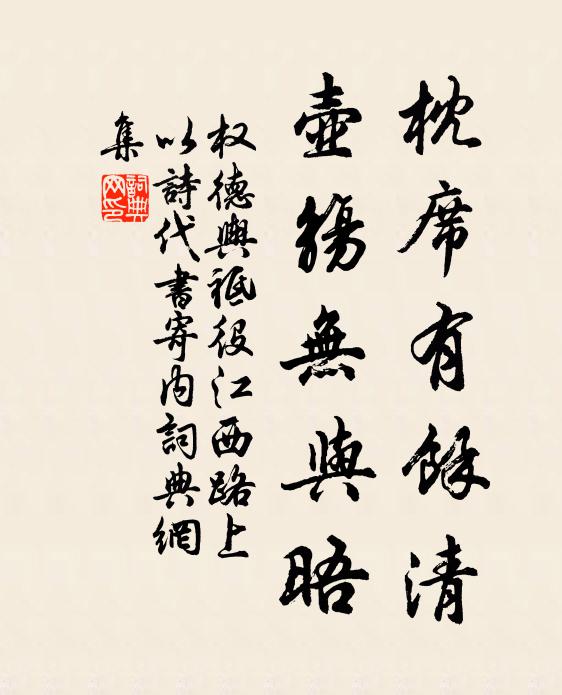 枕席有餘清
壺觴無與晤
权德輿祗役江西路上
以詩代書寄內詞典網
集
詞典網印